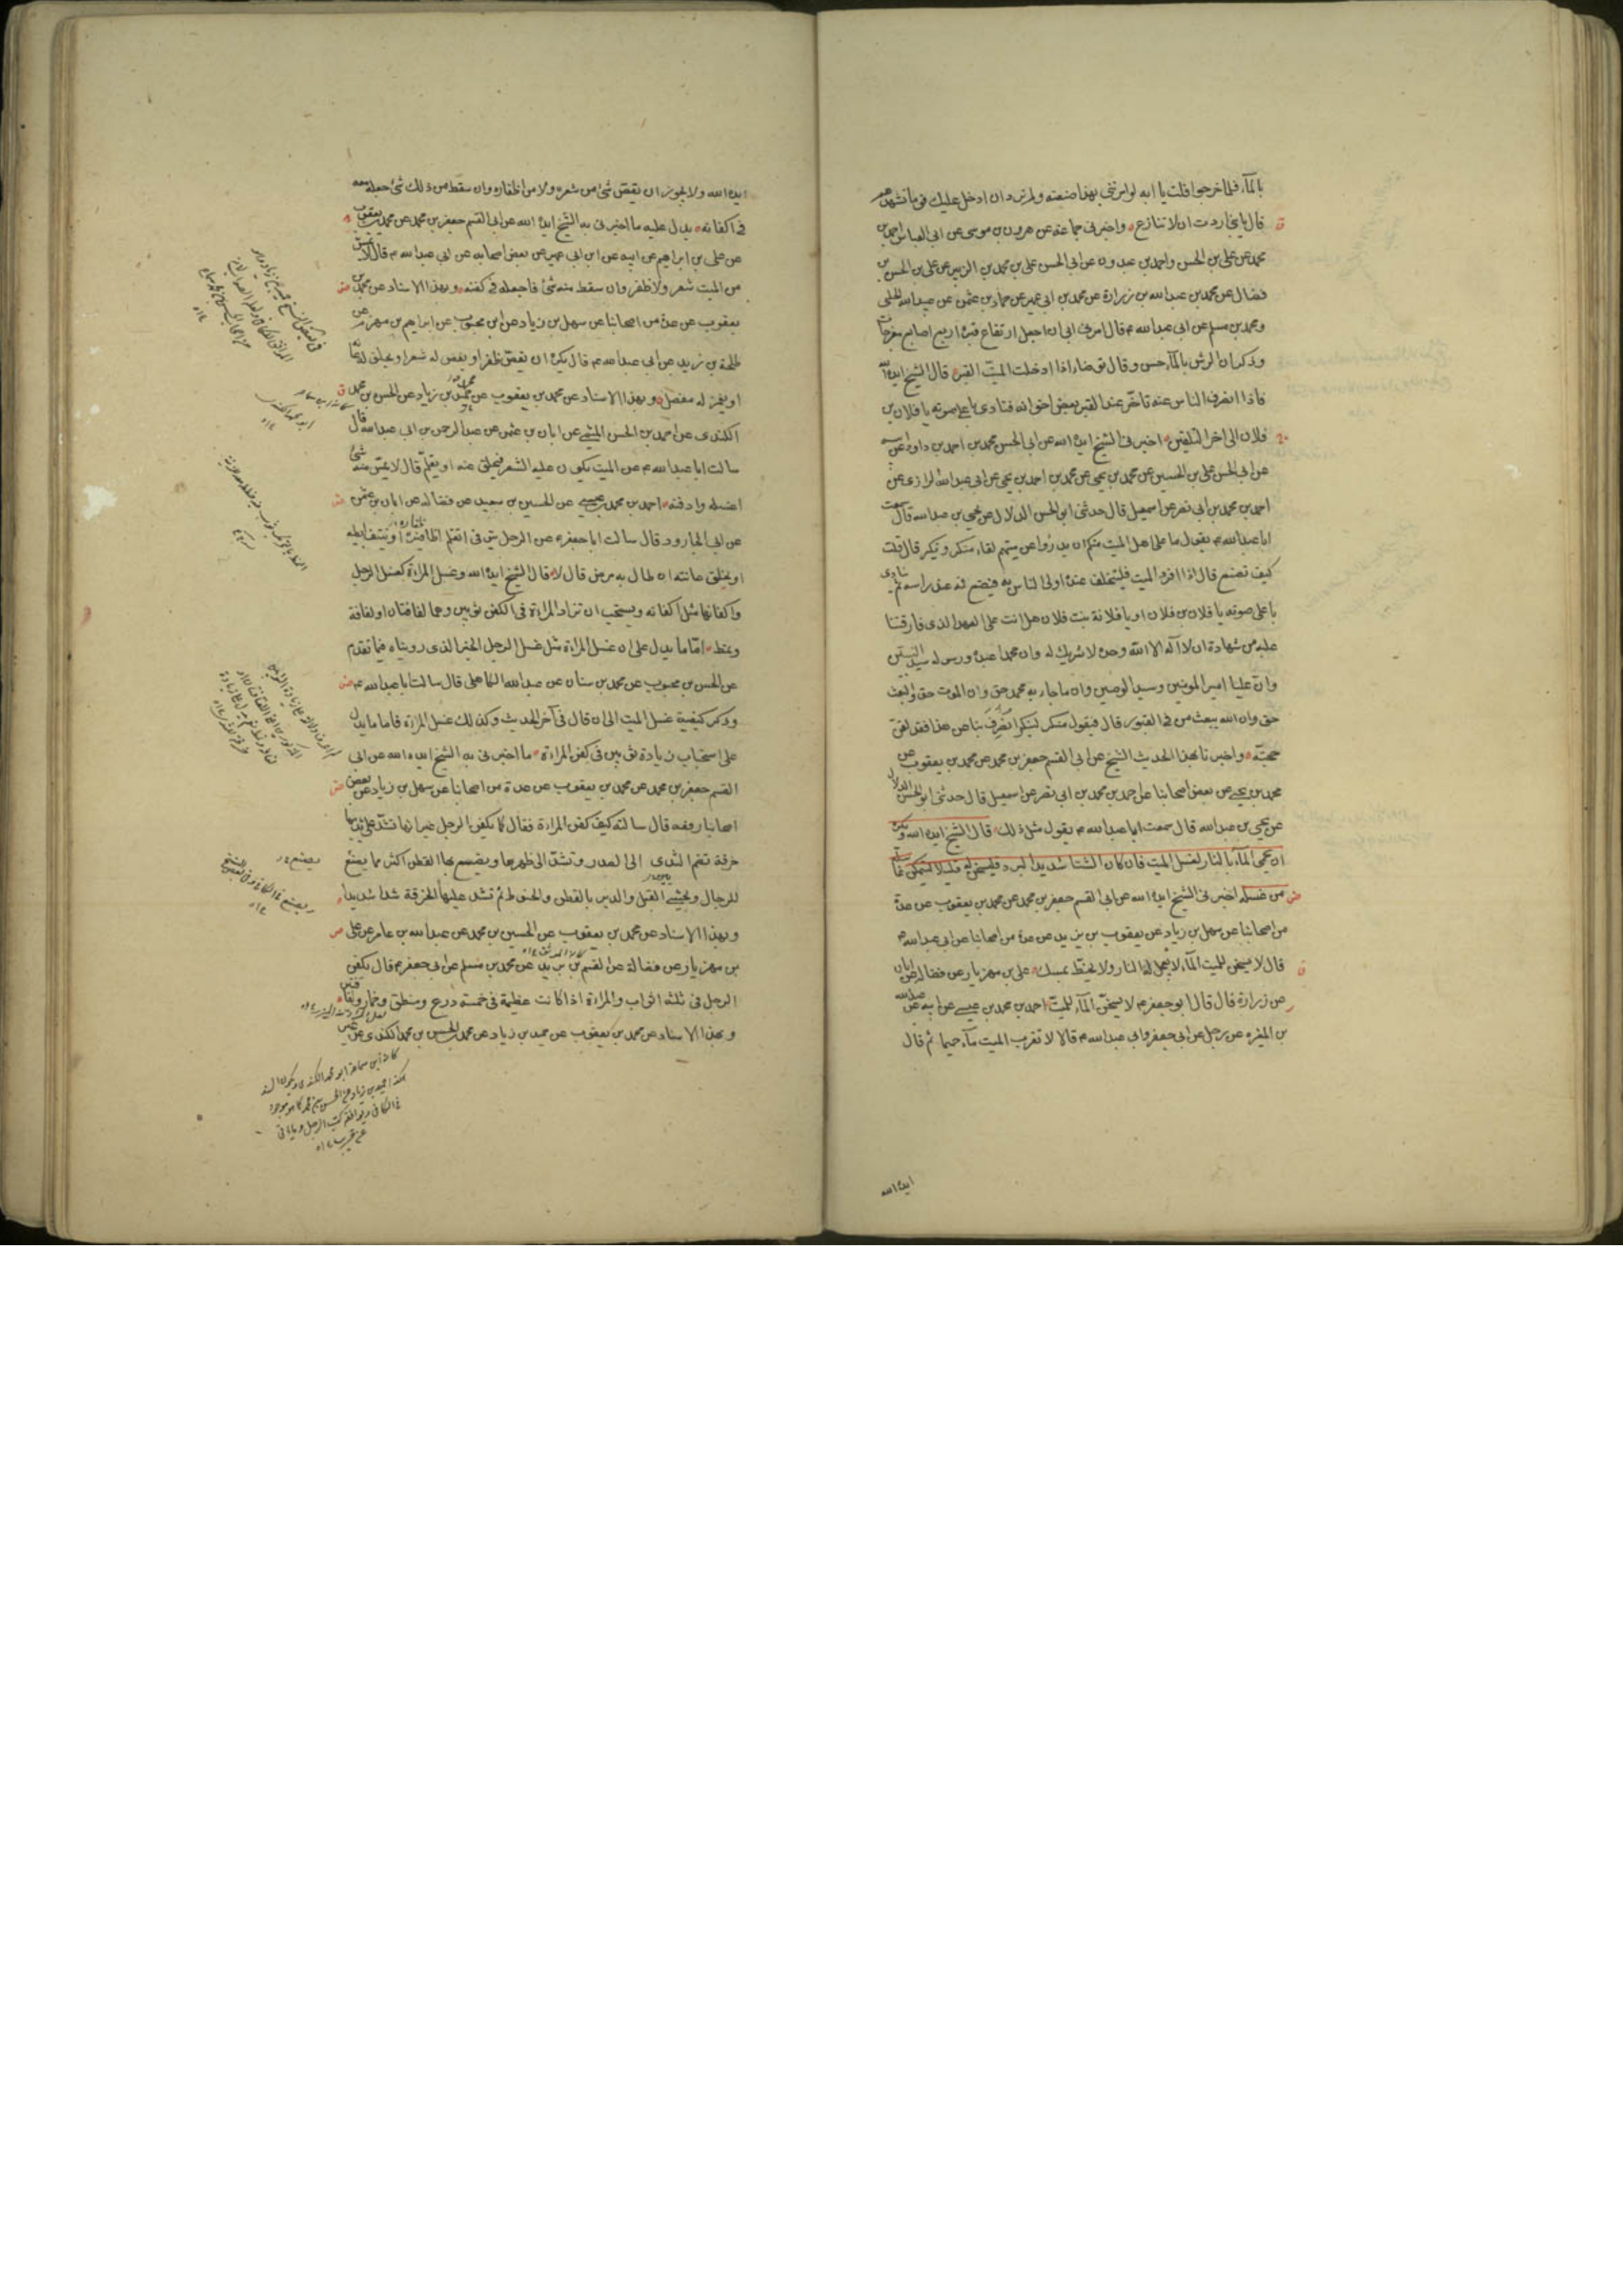 بالماء فلما خرجوا قلت يا ابه لو امرتني بهذا صنعته ولم ترد ان ادخل عليك قوما تشهدهم
قال يا بني اردت ان لا تنازع واخبرني جماعة عن هرون بن موسى عن ابي العباس احمد بن
محمد عن علي بن الحسن واحمد بن عبدون عن ابي الحسن علي بن محمد بن الزبير عن علي بن الحسن بن
فضال عن محمد بن عبدالله بن زرارة عن محمد بن ابي عمير عن حماد بن عثمن عن عبيد الله الحلبي
ومحمد بن مسلم عن ابي عبدالله ع قال امرني ابي ان اجعل ارتفاع قبره اربع اصابع مفرجات
وذكر ان الرش بالماء حسن وقال توضاء اذا ادخلت الميت القبر قال الشيخ ايده الله
فاذا انصرف الناس عنه تاخر عند القبر بعض اخوانه فنادى باعلى صوته يا فلان بن
فلان الى اخر التلقين اخبرني الشيخ ايده الله عن ابي الحسن محمد بن احمد بن داود عن
عن ابي الحسن علي بن الحسين عن محمد بن يحيى عن محمد بن احمد بن يحيى عن ابي عبدالله الرازي عن
احمد بن محمد بن ابي نصر عن اسمعيل قال حدثني ابو الحسن الدلال عن يحيى بن عبدالله قال سمعت
ابا عبدالله ع يقول ما على اهل الميت منكم ان يدرؤا عن ميتهم لقاء منكر ونكير قال قلت
كيف تصنع قال اذا افرد الميت فليتخلف عنده اولى الناس به فيضع فمه عند راسه ثم نادى
باعلى صوته يا فلان بن فلان او يا فلانة بنت فلان هل انت على العهد الذي فارقتنا
عليه من شهادة ان لا اله الا الله وحده لا شريك له وان محمدا عبده ورسوله سيد النبيين
وان عليا امير المومنين وسيد الوصيين وان ما جاء به محمد حق وان الموت حق والبعث
حق وان الله يبعث من في القبور قال فيقول منكر لنكير انصرف بنا عن هذا فقد لقن
حجته واخبرنا بهذا الحديث الشيخ عن ابي القسم جعفر بن محمد عن محمد بن يعقوب عن
محمد بن يحيى عن بعض اصحابنا عن احمد بن محمد بن ابي نصر عن اسمعيل قال حدثني ابو الحسن الدلال
عن يحيى بن عبدالله قال سمعت ابا عبدالله ع يقول مثل ذلك قال الشيخ ايده الله ويكره
ان يحمى الماء بالنار لغسل الميت فان كان الشتا شديد البرد فليسخن له قليلا ليتمكن غاسله
من غسله اخبرني الشيخ ايده الله عن ابي القسم جعفر بن محمد عن محمد بن يعقوب عن عدة
من اصحابنا عن سهل بن زياد عن يعقوب بن يزيد عن عدة من اصحابنا عن ابي عبدالله ع
قال لا يسخن للميت الماء لا يعجل له النار ولا يحنط بمسك علي بن مهزيار عن فضاله عن ابان
عن زرارة قال قال ابو جعفر ع لا يسخن الماء للميت احمد بن محمد بن عيسى عن ابيه عن عبدالله
بن المغيره عن رجل عن ابي جعفر وابي عبدالله ع قالا لا تقرب الميت ماء حميما ثم قال
ايده الله
ايده الله ولا يجوز ان يقص شئ من شعره ولا من اظفاره وان سقط من ذلك شئ جعله معه
في اكفانه يدل عليه ما اخبرني به الشيخ ايده الله عن ابي القسم جعفر بن محمد عن محمد بن يعقوب
عن علي بن ابراهيم عن ابيه عن ابن ابي عمير عن بعض اصحابه عن ابي عبدالله ع قال لا يمس
من الميت شعر ولا ظفر وان سقط منه شئ فاجعله في كفنه وبهذا الاسناد عن محمد بن
يعقوب عن عدة من اصحابنا عن سهل بن زياد عن ابن محبوب عن ابراهيم بن مهزم عن
طلحة بن زيد عن ابي عبدالله ع قال يكره ان يقص ظفر او يقص له شعر او يحلق له عانة
او يغمز له مفصل وبهذا الاسناد عن محمد بن يعقوب عن حميد بن زياد عن الحسن بن محمد
الكندي عن احمد بن الحسن الميثمي عن ابان بن عثمن عن عبدالرحمن بن ابي عبدالله قال
سالت ابا عبدالله ع عن الميت يكون عليه الشعر فيحلق عنه او يقلم قال لا يمس منه شئ
اغسله وادفنه احمد بن محمد بن عيسى عن الحسين بن سعيد عن فضالة عن ابان بن عثمن
عن ابي الجارود قال سالت ابا جعفر ع عن الرجل يتوفى اتقلم اظافيره او ينتف ابطيه
او يحلق عانته ان طال به مرض قال لا قال الشيخ ايده الله وغسل المراة كغسل الرجل
واكفانها مثل اكفانه ويستحب ان تزاد المراة في الكفن ثوبين وهما لفافتان او لفافة
ونمط اما ما يدل على ان غسل المراة مثل غسل الرجل الخبر الذي رويناه فيما تقدم
عن الحسن بن محبوب عن محمد بن سنان عن عبدالله الكاهلي قال سالت ابا عبدالله ع
وذكر كيفية غسل الميت الى ان قال في آخر الحديث وكذلك غسل المراة فاما ما يدل
على استحباب زيادة ثوبين في كفن المراة ما اخبرني به الشيخ ايده الله عن ابي
القسم جعفر بن محمد عن محمد بن يعقوب عن عدة من اصحابنا عن سهل بن زياد عن بعض
اصحابنا رفعه قال سالته كيف كفن المراة فقال كما يكفن الرجل غير انها تشد على ثدييها
خرقة تضم الثدى الى الصدر وتشد الى ظهرها ويضع بها القطن اكثر مما يضع
للرجال ويحشى القبل والدبر بالقطن والحنوط ثم تشد عليها الخرقة شدا شديدا
وبهذا الاسناد عن محمد بن يعقوب عن الحسين بن محمد عن عبدالله بن عامر عن علي
بن مهزيار عن فضالة عن القسم بن يزيد عن محمد بن مسلم عن ابي جعفر ع قال يكفن
الرجل في ثلثه اثواب والمراة اذا كانت عظيمة في خمسة درع ومنطق وخمار ولفافتين
وبهذا الاسناد عن محمد بن يعقوب عن حميد بن زياد عن محمد الحسن بن محمد الكندي عن غير